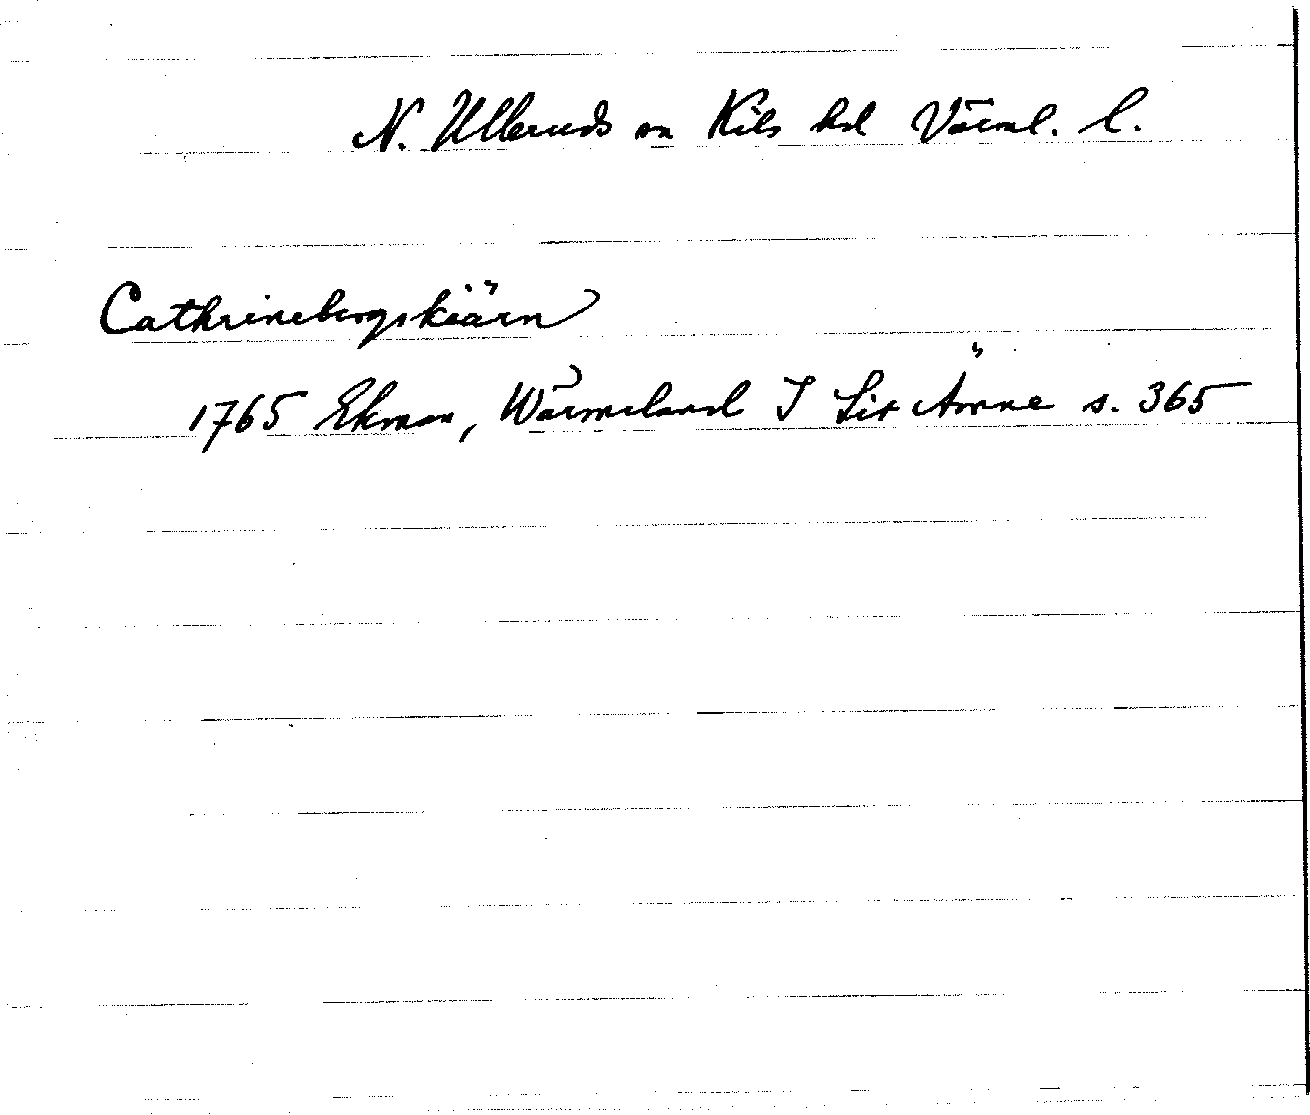 N. Ulleruds sn Kils hd Värml. l.
Cathrinebergskiärn
1765 Ekman, Wärmeland I Sit Ämne s. 365